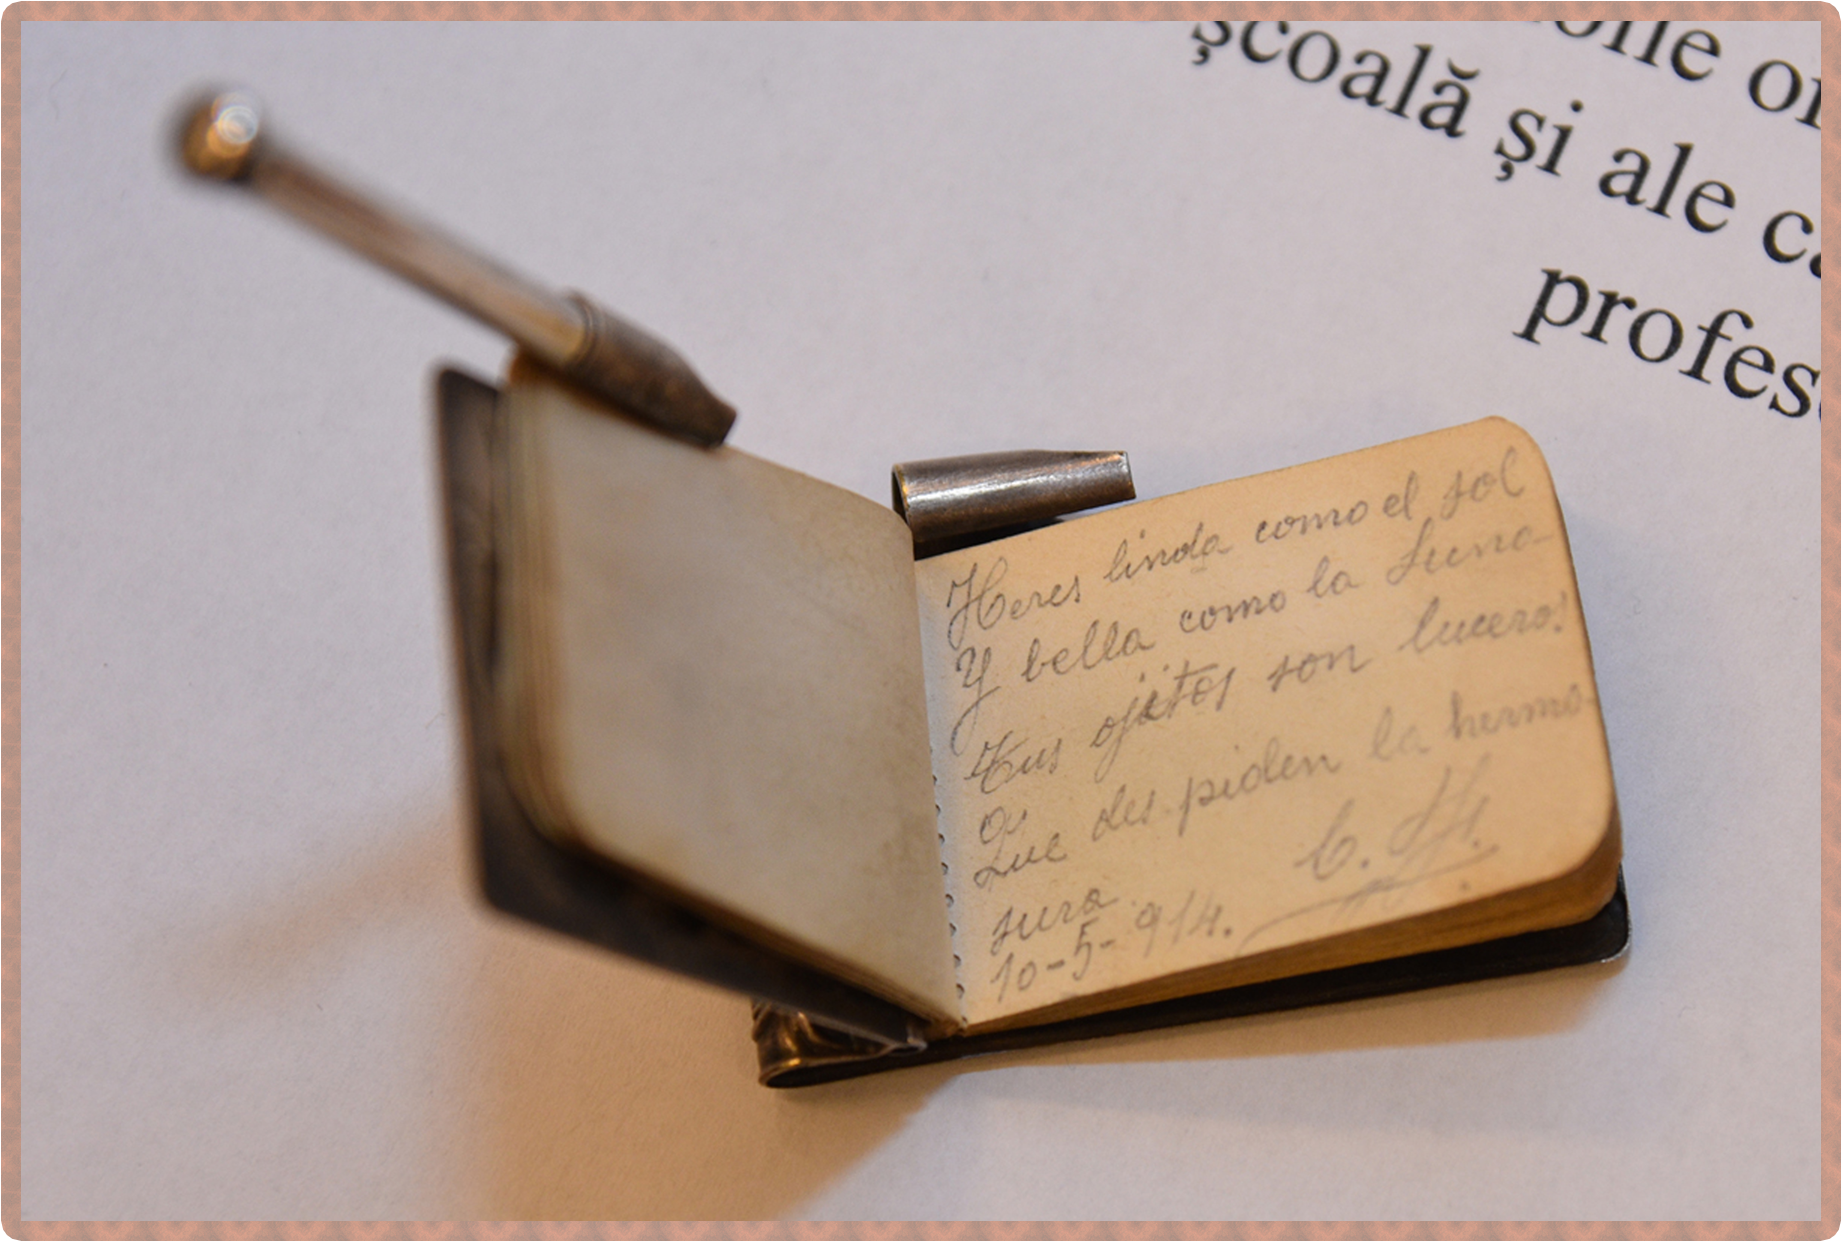 școală și ale
Heres linda como el sol
Y bella como la Luna
Tus ojitos son luceros!
Que des piden la hermo-
sura
C. H.
10-5-914.